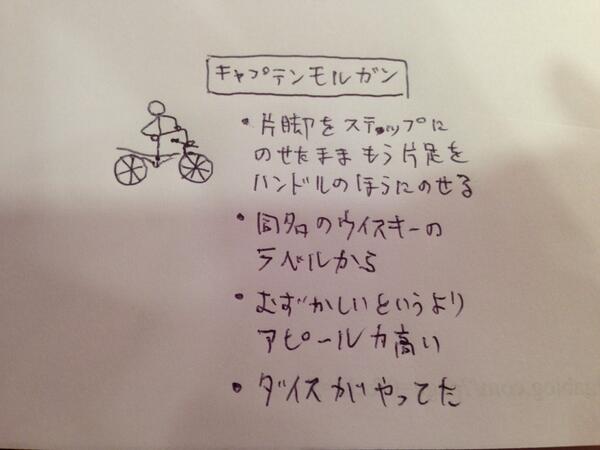 キャプテンモルガン
• 片脚をステップに
のせたまま もう片足を
ハンドルのほうにのせる
• 同名のウイスキーの
ラベルから
• むずかしいというより
アピール力高い
• ダイスがやってた